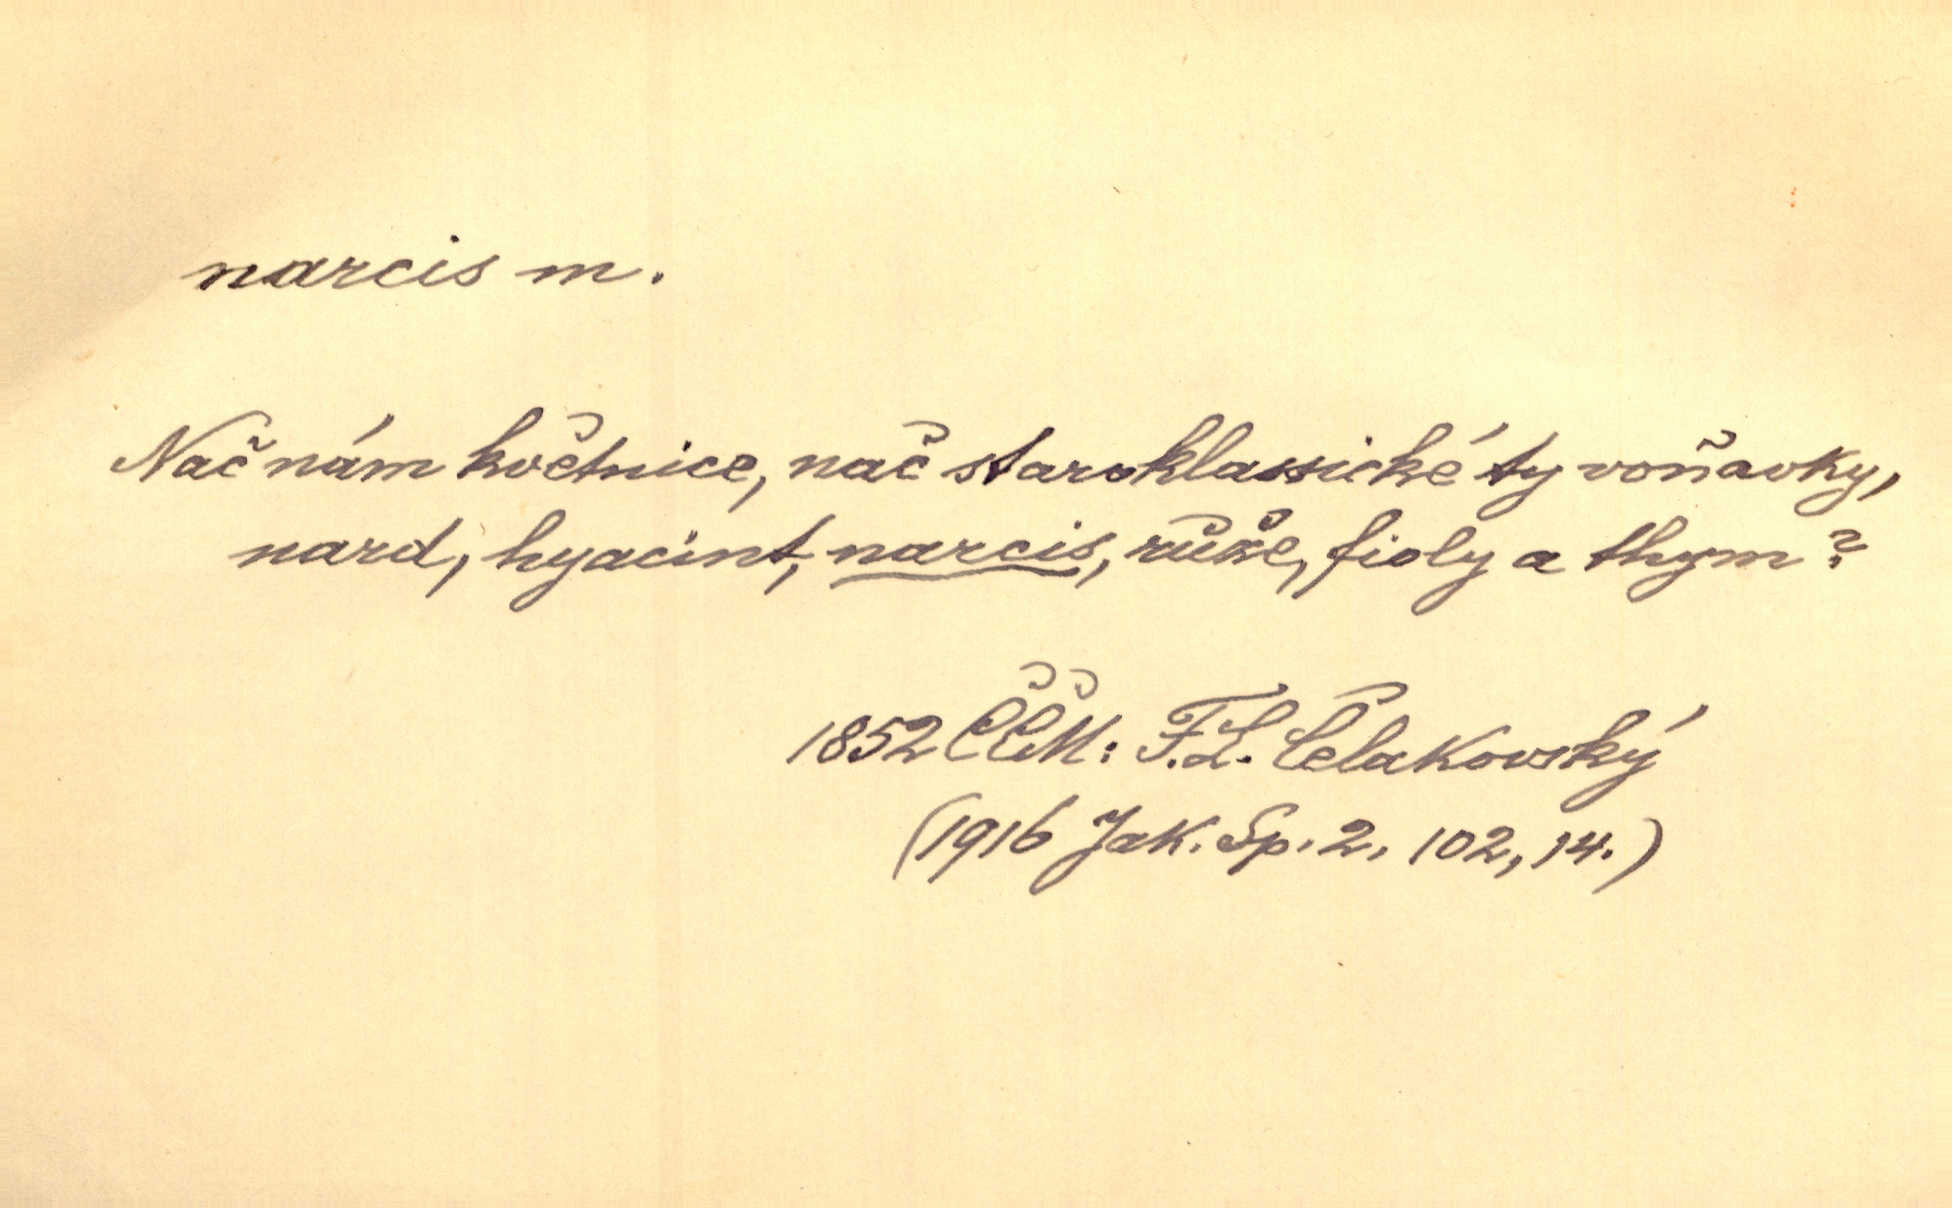 narcis m.
Nač nám květnice, nač staroklassické ty voňavky,
nard, hyacint, narcis, růže, fioly a thym?
1852 ČČM: F. L. Čelakovský
(1916 Jak. Sp. 2, 102, 14.)